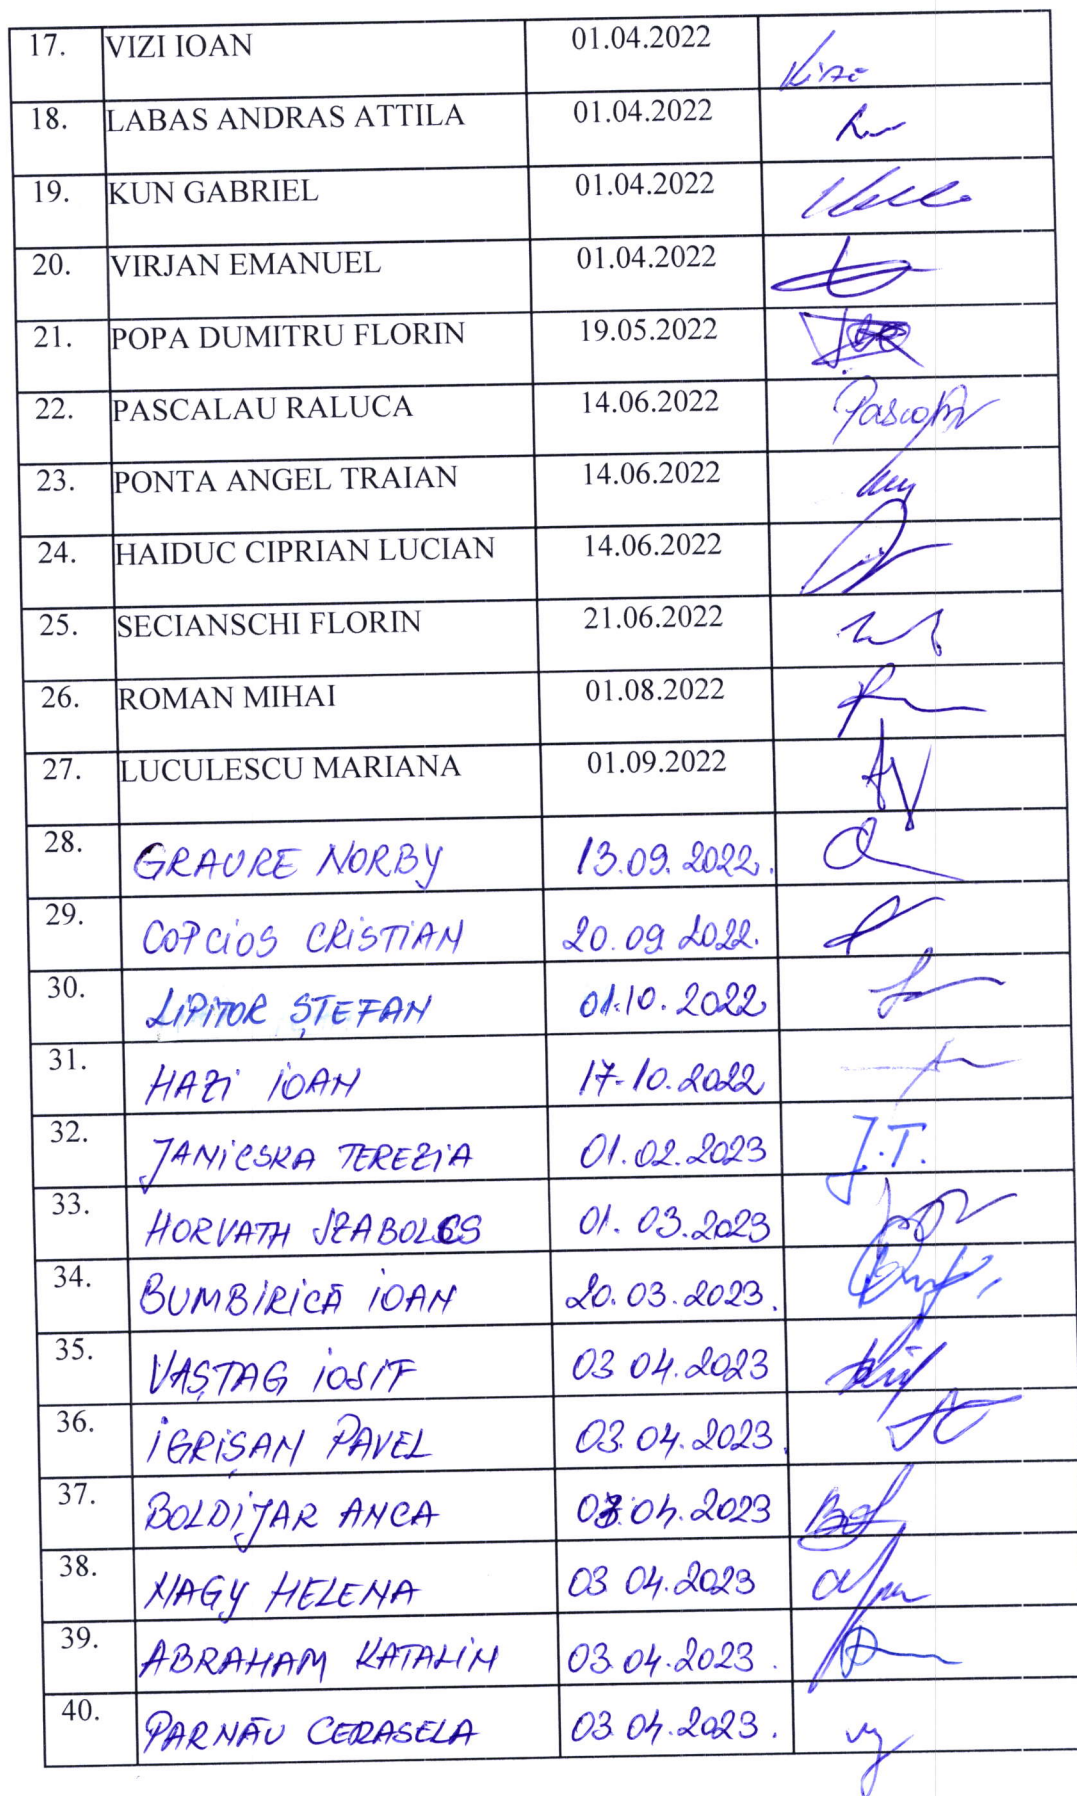 17. VIZI IOAN 01.04.2022 Vizi
18. LABAS ANDRAS ATTILA 01.04.2022
19. KUN GABRIEL 01.04.2022
20. VIRJAN EMANUEL 01.04.2022
21. POPA DUMITRU FLORIN 19.05.2022
22. PASCALAU RALUCA 14.06.2022
23. PONTA ANGEL TRAIAN 14.06.2022
24. HAIDUC CIPRIAN LUCIAN 14.06.2022
25. SECIANSCHI FLORIN 21.06.2022
26. ROMAN MIHAI 01.08.2022
27. LUCULESCU MARIANA 01.09.2022
28. GRAURE NORBY 13.09.2022.
29. COPCIOS CRISTIAN 20.09 2022.
30. LIPITOR ȘTEFAN 01.10.2022
31. HAZI IOAN 17.10.2022
32. JANICSKA TEREZIA 01.02.2023 J.T.
33. HORVATH SZABOLCS 01.03.2023
34. BUMBIRICĂ IOAN 20.03.2023.
35. VAȘTAG IOSIF 03 04.2023
36. IGRIȘAN PAVEL 03.04.2023
37. BOLDIJAR ANCA 03.04.2023
38. NAGY HELENA 03 04.2023
39. ABRAHAM KATALIN 03.04.2023.
40. PARNĂU CERASELA 03.04.2023.